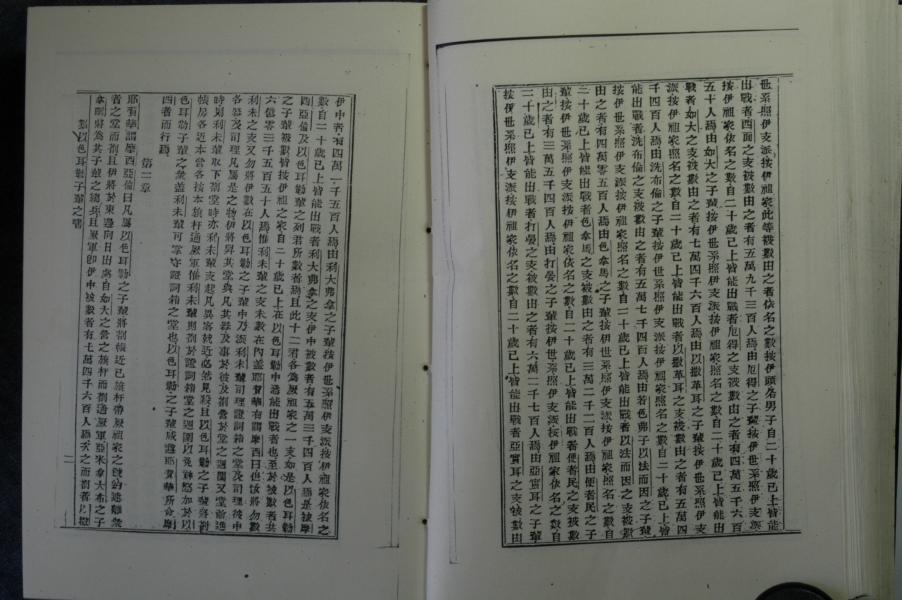 世系照伊支派按伊祖家此等被數由之者依名之數按伊頭各男子自二十歲已上皆能
出戰者西面之支被數由之者有五萬九千三百人爲由厄得之子輩按伊世系照伊支派
按伊祖家依名之數自二十歲已上皆能出戰者厄得之支被數由之者有四萬五千六百
五十人爲由如大之子輩按伊世系照伊支派按伊祖家照名之數自二十歲已上皆能出
戰者如大之支被數由之者有七萬四千六百人爲由以撒革耳之子輩按伊世系照伊支
派按伊祖家照名之數自二十歲已上皆能出戰者以撒革耳之支被數由之者有五萬四
千四百人爲由洗布倫之子輩按伊世系照伊支派按伊祖家照名之數自二十歲已上皆
能出戰者洗布倫之支被數由之者有五萬七千四百人爲由若色弗子以法而因之子輩
按伊世系照伊支派按伊祖家照名之數自二十歲已上皆能出戰者以法而因之支被數
由之者有四萬零五百人爲由色拿馬之子輩按伊世系照伊支派按伊祖家依名之數自
二十歲已上皆能出戰者色拿馬之支被數由之者有三萬二千二百人爲由便者民之子
輩按伊世系照伊支派按伊祖家依名之數自二十歲已上皆能出戰者便者民之支被數
由之者有三萬五千四百人爲由打晏之子輩按伊世系照伊支派按伊祖家依名之數自
二十歲已上皆能出戰者打晏之支被數由之者有六萬二千七百人爲由亞實耳之子輩
按伊世系照伊支派按伊祖家依名之數自二十歲已上皆能出戰者亞實耳之支被數由
伊中者有四萬一千五百人爲由利大弗拿之子輩按伊世系照伊支派按伊祖家依名之
數自二十歲已上皆能出戰者利大弗拿之支伊中被數者有五萬三千四百人爲是被摩
西亞倫及以色耳勒輩之列君所數者焉且此十二君各爲厥祖家之一支如是以色耳勒
之子輩被數皆按伊祖之家自二十歲已上在以色耳勒中悉能出戰者也至於被數者共
六億零三千五百五十人爲惟利未之支未數在內蓋耶賀華有謂摩西曰但汝將勿數
利未之支又勿將伊數在以色耳勒之子輩中乃派利未輩司理證詞箱之堂及司理彼中
各器及司理凡屬是之物伊將舁其堂與凡其器及事於彼及劄營於堂之週圍又堂前進
時則利未輩取下劄堂時亦利未輩支起凡異客就近必然見殺且以色耳勒之子輩將劄
帳房各近本營各按本旗杆通厥軍惟利未輩則劄於證詞箱堂之週圍以免
色耳勒子輩之衆蓋利未輩可掌守證詞箱之堂也以色耳勒之子輩咸遵耶賀華所命摩
西者而行焉
第二章
耶賀華謂摩西亞倫曰凡屬以色耳勒之子輩將劄帳近已旗杆帶厥祖家之號約遠離衆
者之堂而劄且伊將於東邊向日出處自如大之營之旗杆而劄通厥軍亞米拿大布之子
拿順將爲其子輩之總兵且厥軍即伊中被數者有七萬四千六百人爲次之而劄者以撒
以色耳勒子輩之
二